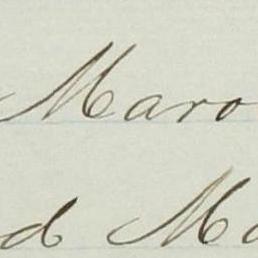 Maro
d Ma